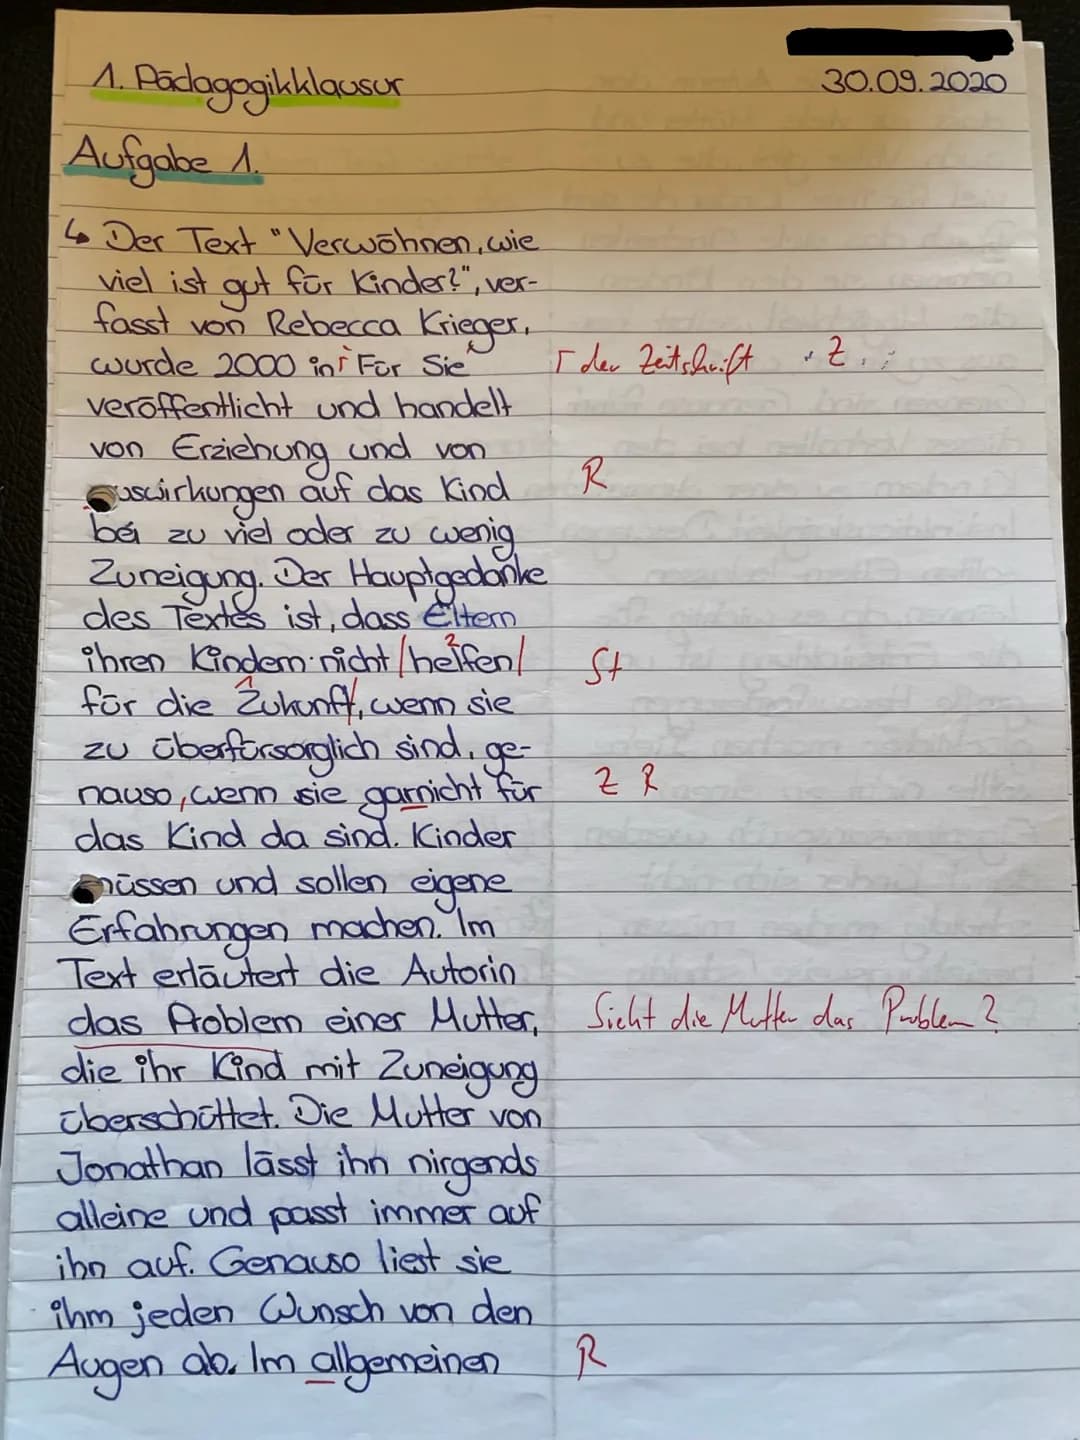 1. Pädagogikklausur
30.09.2020
Aufgabe 1.
↳ Der Text "Verwöhnen, wie
viel ist gut für Kinder?", ver-
fasst von Rebecca Krieger,
wurde 2000 in Für Sie
Γ der Zeitschrift Z
veröffentlicht und handelt
von Erziehung und von
uswirkungen auf das Kind
R
bei zu viel oder zu wenig
Zuneigung. Der Hauptgedanke
des Textes ist, dass Eltern
ihren Kindern nicht helfen
2
St
1
für die Zukunft, wenn sie
zu überfürsorglich sind, ge-
nauso, wenn sie garnicht für
Z R
das Kind da sind. Kinder
müssen und sollen eigene
Erfahrungen machen. Im
Text erläutert die Autorin
das Problem einer Mutter,
Sieht die Mutter das Problem?
die ihr Kind mit Zuneigung
überschüttet. Die Mutter von
Jonathan lässt ihn nirgends
alleine und passt immer auf
ihn auf. Genauso liest sie
ihm jeden Wunsch von den
Augen ab. Im allgemeinen
R